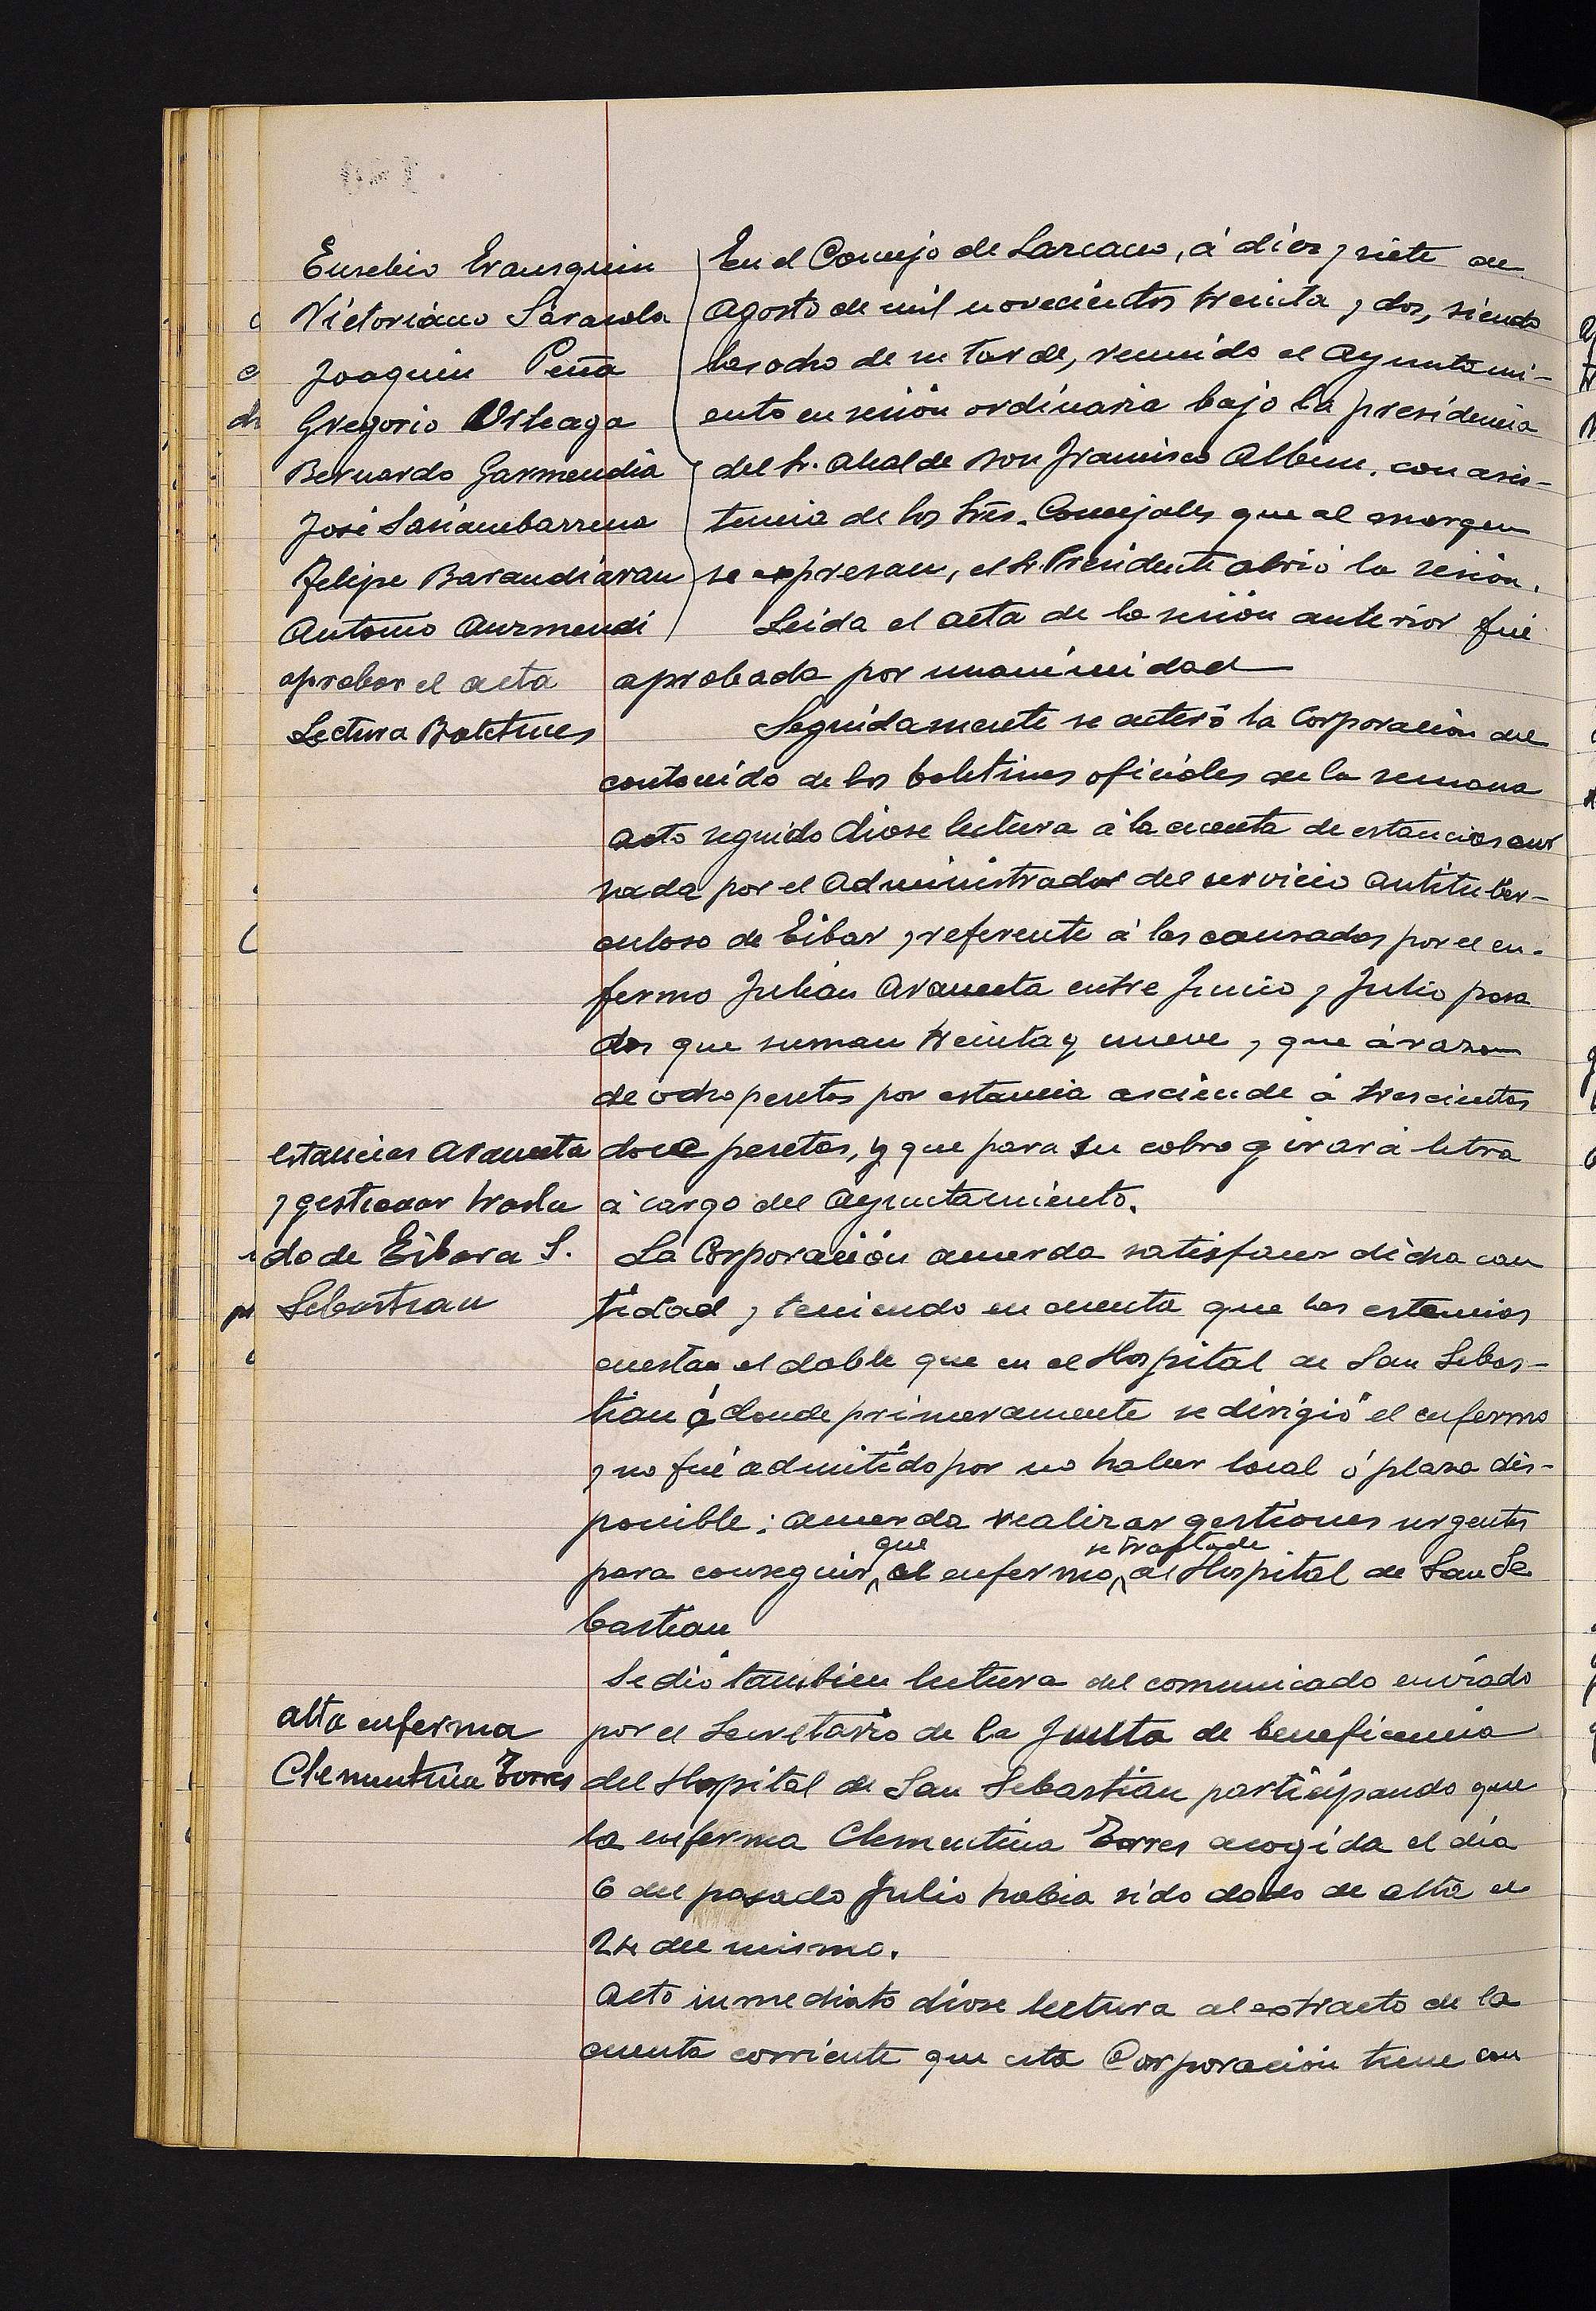 Eusebio Erausquin
Victoriano Sarasola
Joaquin Peña
Gregorio Urteaga
Bernardo Garmendia
José Sasiambarrena
Felipe Barandiaran
Antonio Aurmendi
aprobar el acta
Lectura Boletines
En el Concejo de Lazcano, á diez y siete de
Agosto de mil novecientos treinta y dos, siendo
las ocho de su tarde, reunido el Ayuntami-
ento en sesión ordinaria bajo la presidencia
del Sr. Alcalde Don Francisco Albisu, con asis-
tencia de los Srês. Concejales que al margen
se expresan, el Sr. Presidente abrió la sesión.
Leida el acta de la sesión anterior fué
aprobada por unanimidad
Seguidamente se enteró la Corporación del
contenido de los boletines oficiales de la semana
Acto seguido diose lectura á la cuenta de estancias cur
sada por el Administrador del servicio Antituber-
culoso de Eibar, referente á las causadas por el en-
fermo Julián Aramenta entre Junio y Julio pasa
dos que suman treinta y nueve, que á razon
de ocho pesetas por estancia asciende á trescientas
estancias Aramenta
y gestionar trasla
do de Eibar a S.
Sebastian
doce pesetas, y que para su cobro girará letra
á cargo del Ayuntamiento.
La Corporación acuerda satisfacer dicha can
tidad y teniendo en cuenta que las estancias
cuestan el doble que en el Hospital de San Sebas-
tian á donde primeramente se dirigió el enfermo
y no fué admitido por no haber local ó plaza dis-
ponible: acuerda realizar gestiones urgentes
para conseguir que el enfermo se traslade al Hospital de San Se
bastian
alta enferma
Clementina Torres
Se dió tambien lectura del comunicado enviado
por el Secretario de la Junta de beneficencia
del Hospital de San Sebastián participando que
la enferma Clementina Torres acogida el día
6 del pasado Julio habia sido dado de alta el
24 del mismo.
Acto inmediato diose lectura al extracto de la
cuenta corriente que esta Corporación tiene con